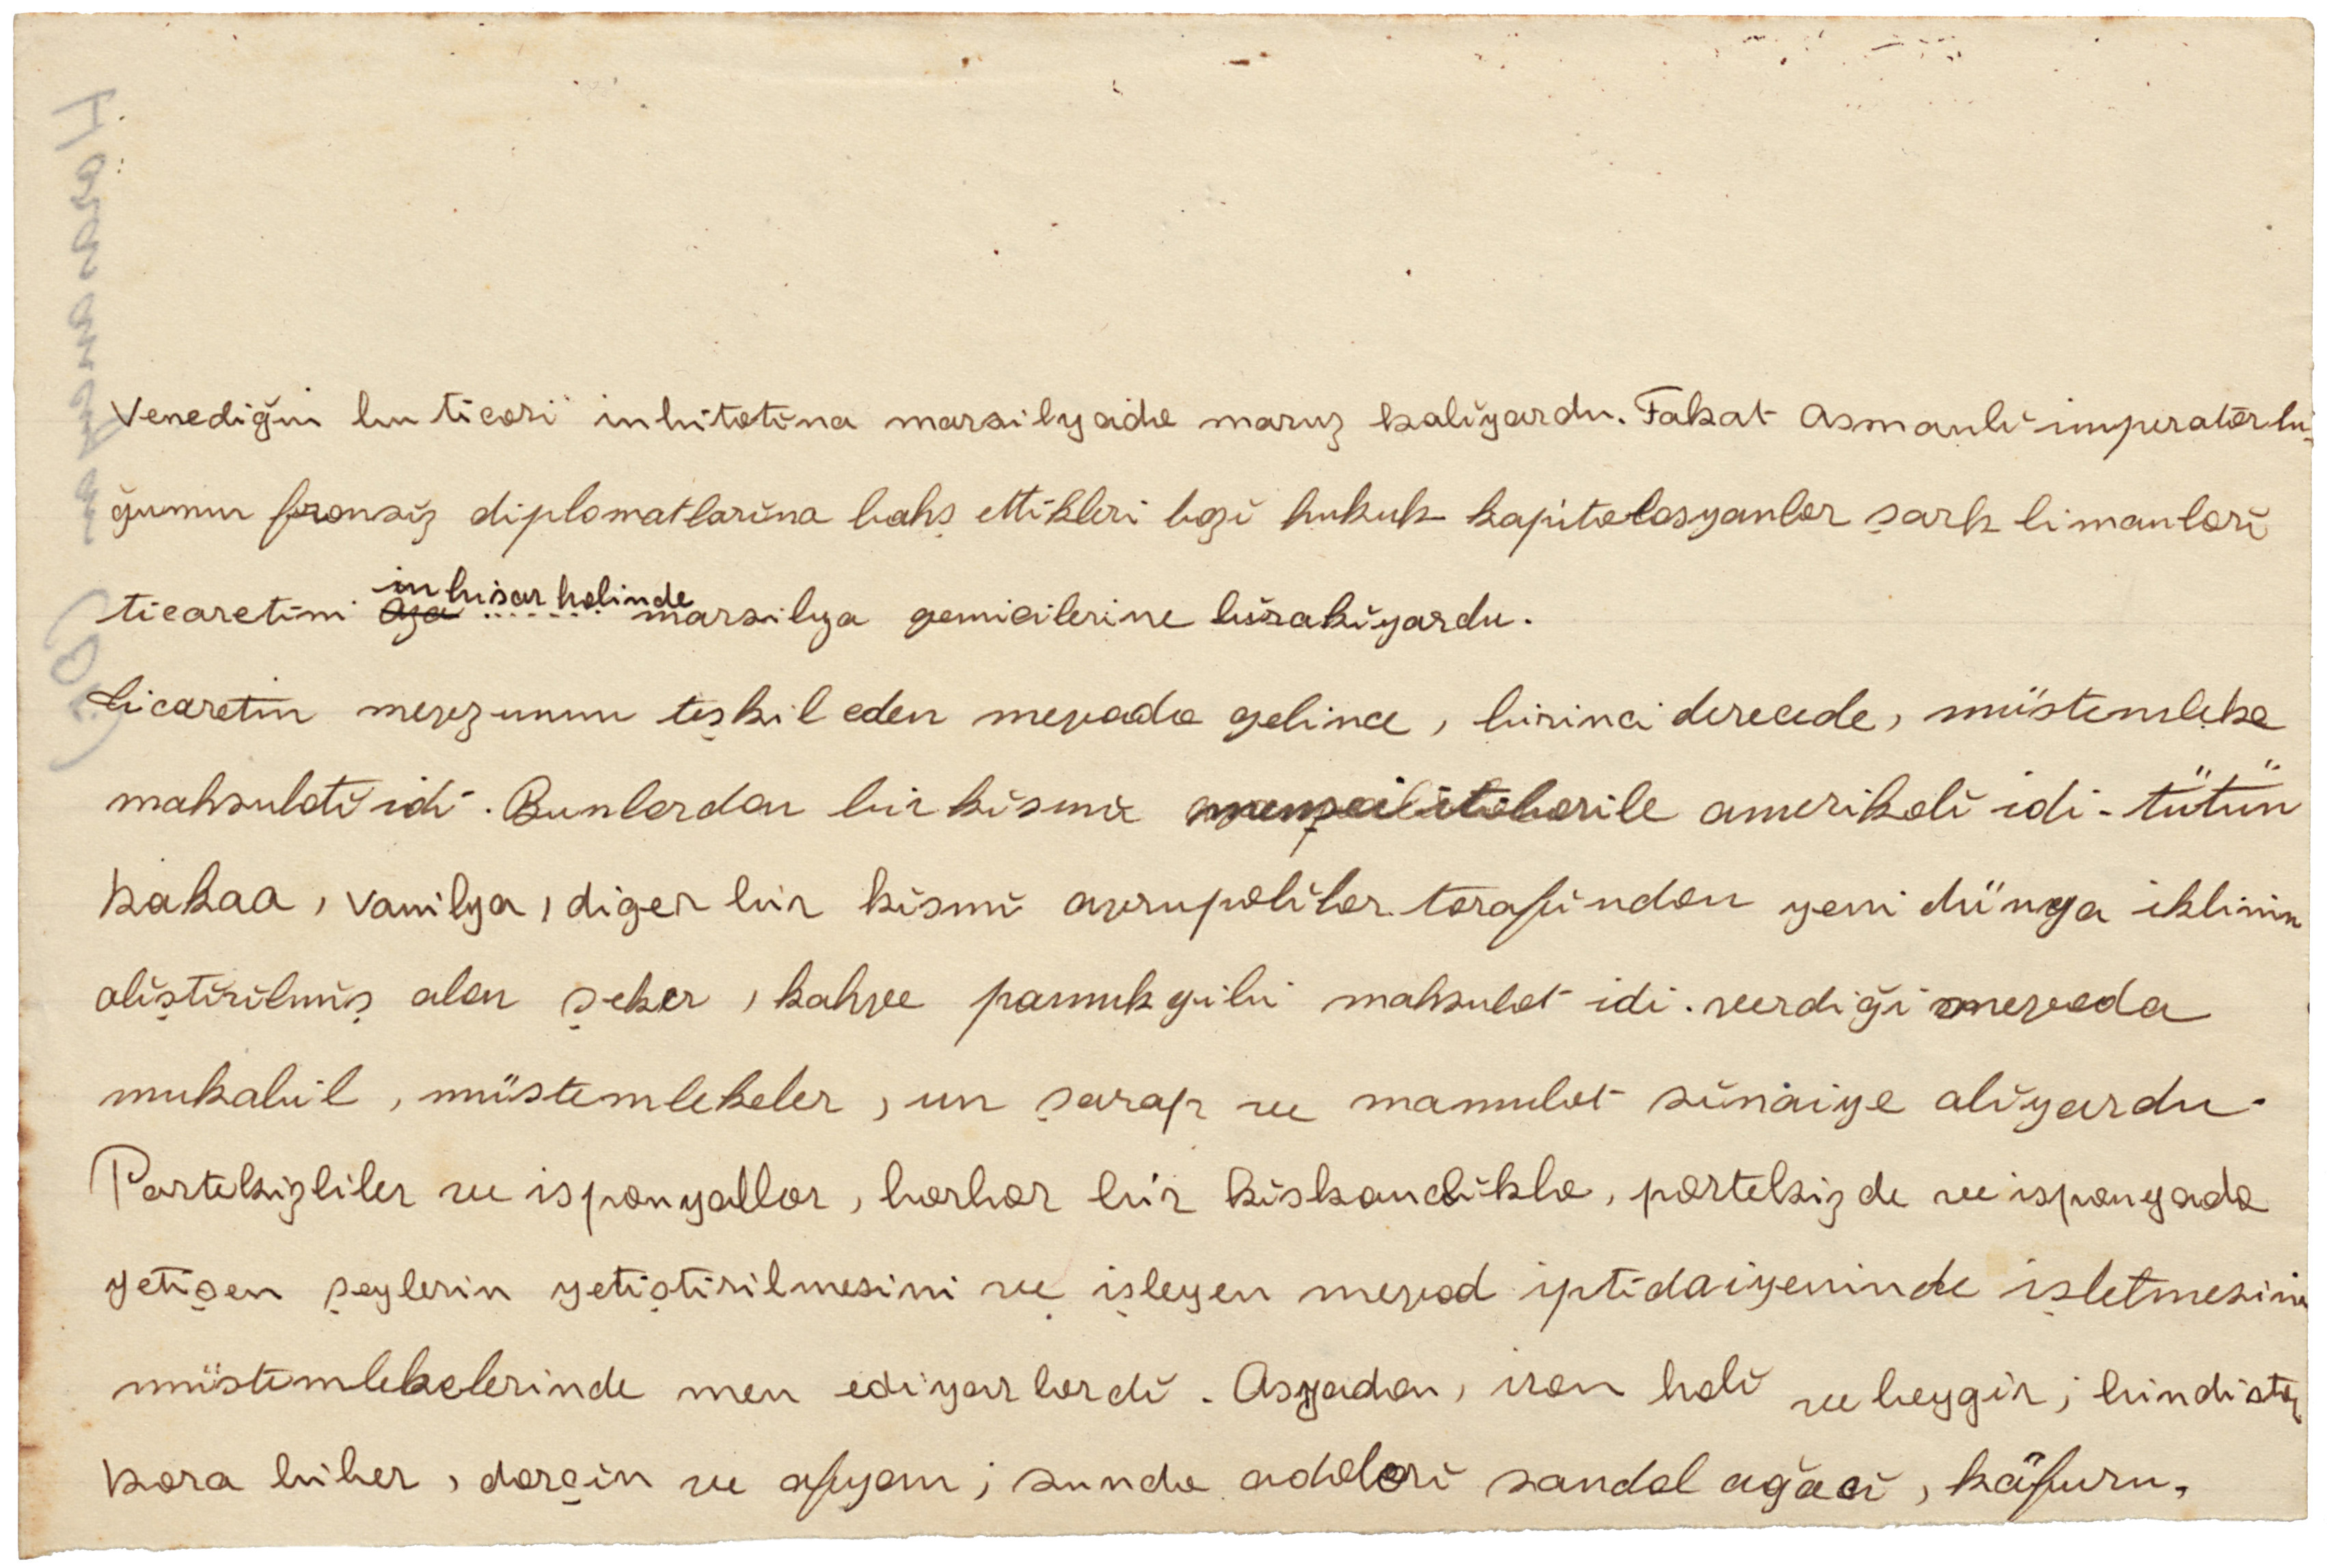 Venediğin bu ticari inhitatına marsilyada maruz kalıyordu. Fakat Osmanlı imperatörlu-
ğumun fransız diplomatlarına bahş ettikleri bazı hukuk kapitolasyonlar şark limanları
ticaretini inhisar halinde marsilya gemicilerine bırakıyordu.
ticaretin mevzuunu teşkil eden mevada gelince, birinci derecede, müstemleke
mahsulatı idi. Bunlardan bir kısmı itibarile amerikalı idi - tütün
kakao, vanilya, diger bir kısmı avrupalılar tarafından yeni dünya iklimin
alıştırılmış olan şeker, kahve pamuk gibi mahsulat idi. verdiği mevada
mukabil, müstemlekeler, un şarap ve mamulat sınaiye alıyordu.
Portekizliler ve ispanyollar, barbar bir kıskançlıkla, portekizde ve ispanyada
yetişen şeylerin yetiştirilmesini ve işleyen mevad iptidaiyeninde işletmesini
müstemlekelerinde men ediyorlardı. Asyadan, iran halı ve beygir; hindistan
kara biber, darçin ve afyon; sunda adaları sandal ağacı, kâfuru,